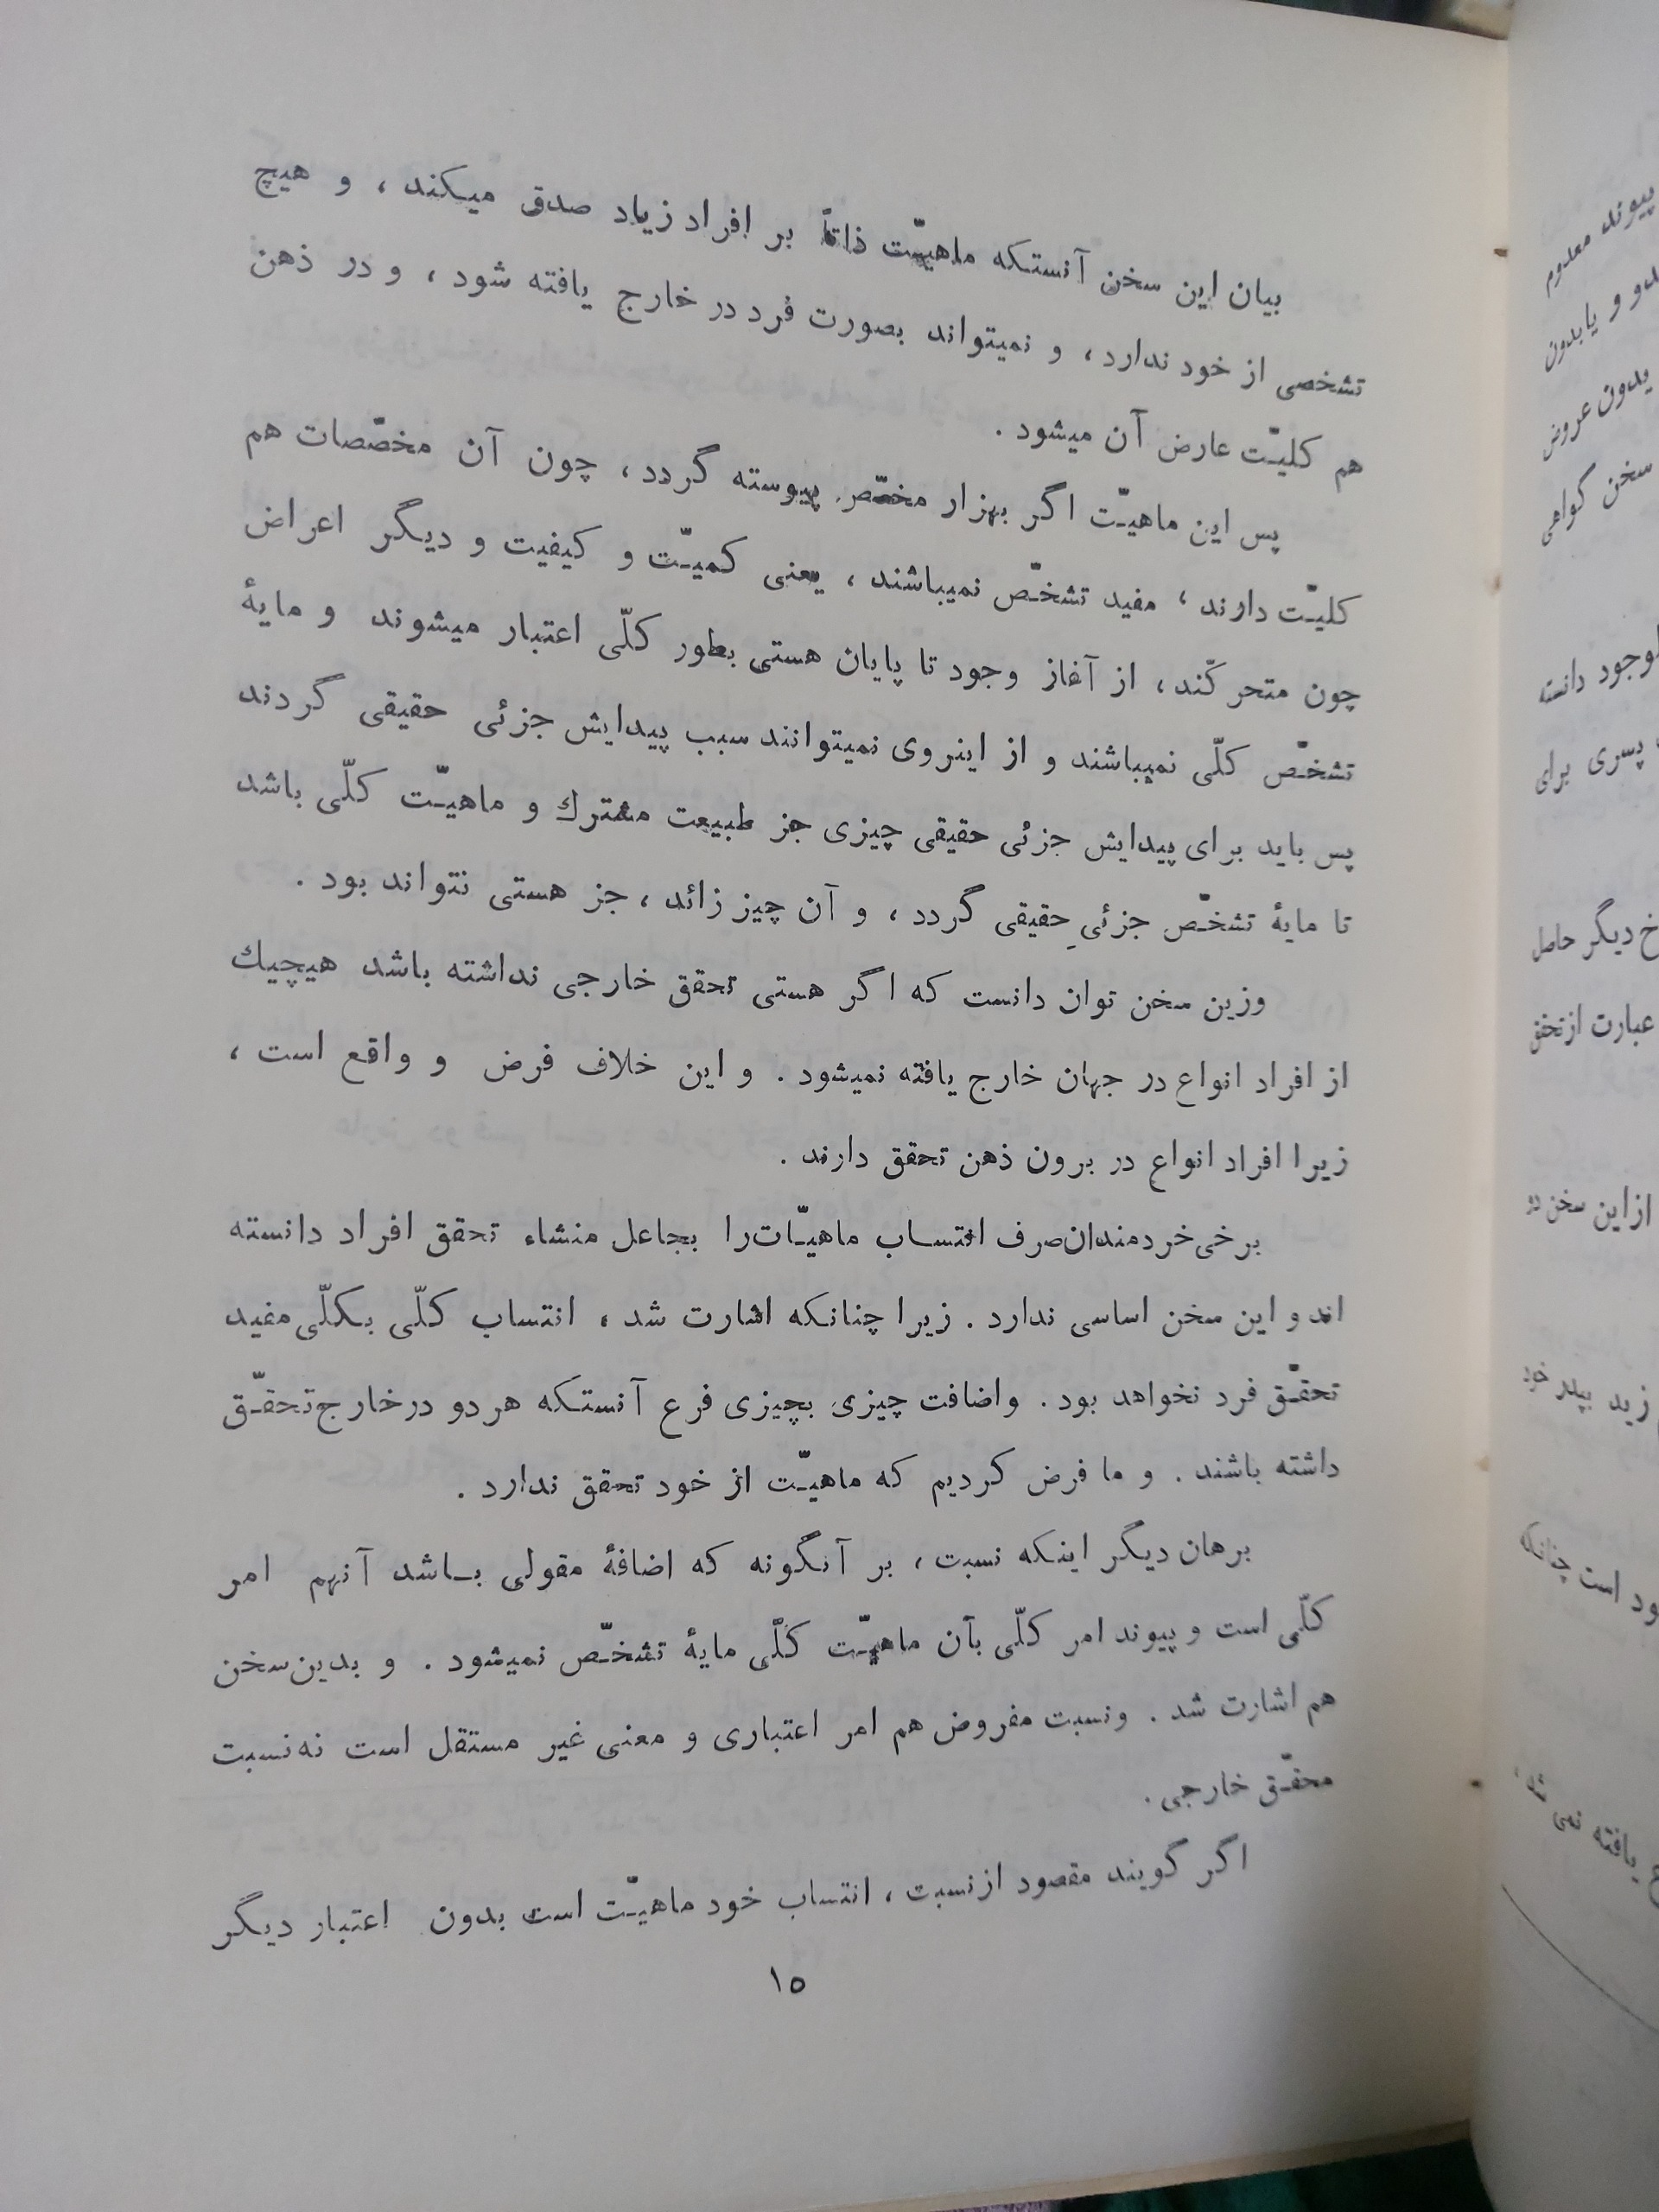 بیان این سخن آنستکه ماهیّت ذاتاً بر افراد زیاد صدق میکند ، و هیچ
تشخصی از خود ندارد ، و نمیتواند بصورت فرد در خارج یافته شود ، و در ذهن
هم کلیّت عارض آن میشود .
پس این ماهیّت اگر بهزار مخصّص پیوسته گردد ، چون آن مخصّصات هم
کلیّت دارند ، مفید تشخّص نمیباشند ، یعنی کمیّت و کیفیت و دیگر اعراض
چون متحرکّند ، از آغاز وجود تا پایان هستی بطور کلّی اعتبار میشوند و مایهٔ
تشخّص کلّی نمیباشند و از اینروی نمیتوانند سبب پیدایش جزئی حقیقی گردند
پس باید برای پیدایش جزئی حقیقی چیزی جز طبیعت مشترك و ماهیّت کلّی باشد
تا مایهٔ تشخّص جزئیِ حقیقی گردد ، و آن چیز زائد ، جز هستی نتواند بود .
وزین سخن توان دانست که اگر هستی تحقق خارجی نداشته باشد هیچیك
از افراد انواع در جهان خارج یافته نمیشود . و این خلاف فرض و واقع است ،
زیرا افراد انواع در برون ذهن تحقق دارند .
برخی خردمندان صرف انتساب ماهیّات را بجاعل منشاء تحقق افراد دانسته
اند و این سخن اساسی ندارد . زیرا چنانکه اشارت شد ، انتساب کلّی بکلّی مفید
تحقّق فرد نخواهد بود . واضافت چیزی بچیزی فرع آنستکه هر دو در خارج تحقّق
داشته باشند . و ما فرض کردیم که ماهیّت از خود تحقق ندارد .
برهان دیگر اینکه نسبت ، بر آنگونه که اضافهٔ مقولی باشد آنهم امر
کلّی است و پیوند امر کلّی بآن ماهیّت کلّی مایهٔ تشخّص نمیشود . و بدین سخن
هم اشارت شد . ونسبت مفروض هم امر اعتباری و معنی غیر مستقل است نه نسبت
محقّق خارجی .
اگر گویند مقصود از نسبت ، انتساب خود ماهیّت است بدون اعتبار دیگر
۱۵
پیوند معدوم
و یا بدون
بدون عروض
سخن گواهی
موجود دانسته
پسری برای
دیگر حاصل
عبارت از تحقق
از این سخن دو
زید بپدر خود
است چنانکه
یافته نمی